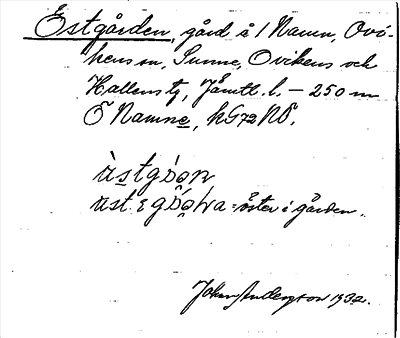 Östgården, gård å 1 Namn, Ovi-
kens sn, Sunne, Ovikens och
Hallens tg, Jämtl. l. — 250 m
Ö Namne, kG72NÖ.
östgɷ̄ɷn
öst ɛ gɷ̄ɷḷva = öster i gården.
Johan Anderson 1932.